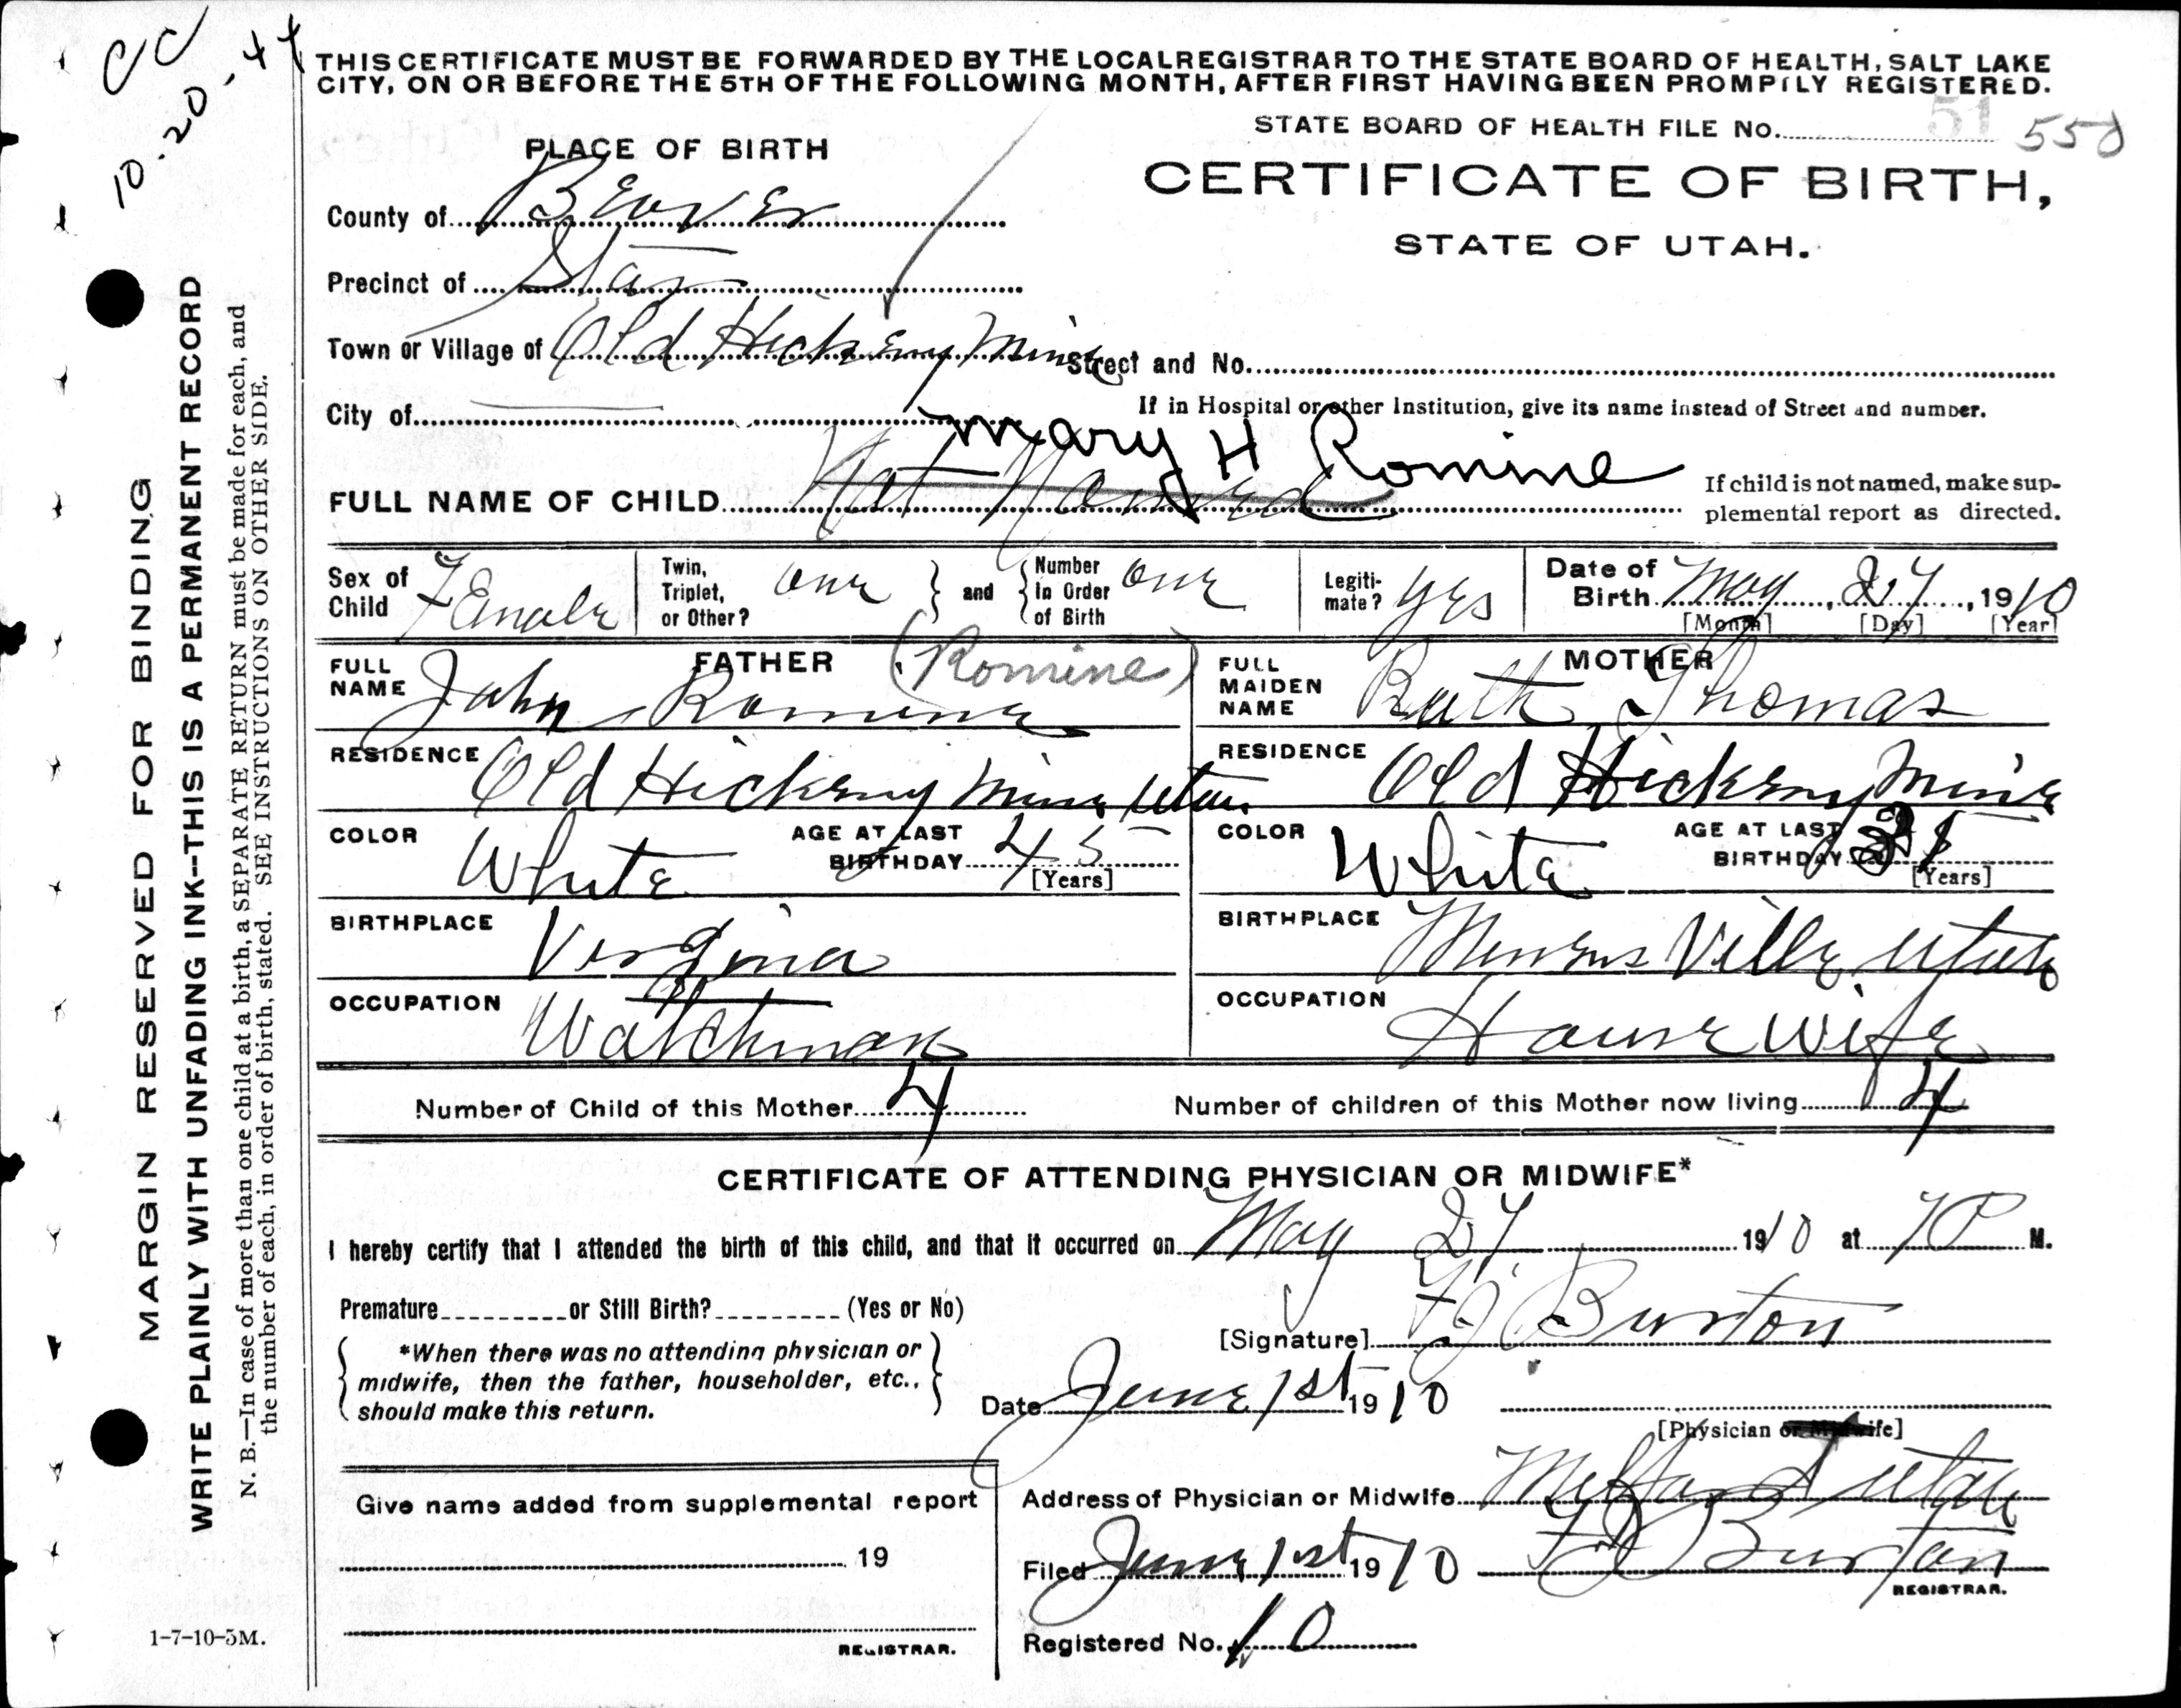 CC
10-20-44
THIS CERTIFICATE MUST BE FORWARDED BY THE LOCAL REGISTRAR TO THE STATE BOARD OF HEALTH, SALT LAKE
CITY, ON OR BEFORE THE 5TH OF THE FOLLOWING MONTH, AFTER FIRST HAVING BEEN PROMPTLY REGISTERED.
STATE BOARD OF HEALTH FILE No. 51 550
PLACE OF BIRTH
CERTIFICATE OF BIRTH,
STATE OF UTAH.
County of Beaver
Precinct of Star
Town or Village of Old Hickery Mine Street and No.
City of
If in Hospital or other Institution, give its name instead of Street and number.
Mary H Romine
FULL NAME OF CHILD Not Named
If child is not named, make sup-
plemental report as directed.
Sex of Child Female Twin, Triplet, or Other? one and Number in Order of Birth one Legiti-mate? yes Date of Birth May, 27, 1910
[Month] [Day] [Year]
FATHER (Romine)
FULL NAME John Romine
RESIDENCE Old Hickery Mine Utah
COLOR White AGE AT LAST BIRTHDAY 45 [Years]
BIRTHPLACE Virginia
OCCUPATION Watchman
MOTHER
FULL MAIDEN NAME Ruth Thomas
RESIDENCE Old Hickery Mine
COLOR White AGE AT LAST BIRTHDAY [Years]
BIRTHPLACE Miners Ville Utah
OCCUPATION House Wife
Number of Child of this Mother 4 Number of children of this Mother now living 4
CERTIFICATE OF ATTENDING PHYSICIAN OR MIDWIFE*
I hereby certify that I attended the birth of this child, and that it occurred on May 27 1910 at 7 P M.
Premature or Still Birth? (Yes or No)
*When there was no attending physician or
midwife, then the father, householder, etc.,
should make this return.
[Signature] Burton
Date June 1st 1910
[Physician or Midwife]
Give name added from supplemental report
19
REGISTRAR.
Address of Physician or Midwife Milford Utah
Filed June 1st 1910 Burton
REGISTRAR.
Registered No. 10
MARGIN RESERVED FOR BINDING
WRITE PLAINLY WITH UNFADING INK—THIS IS A PERMANENT RECORD
N. B.—In case of more than one child at a birth, a SEPARATE RETURN must be made for each, and
the number of each, in order of birth, stated. SEE INSTRUCTIONS ON OTHER SIDE.
1-7-10-5M.